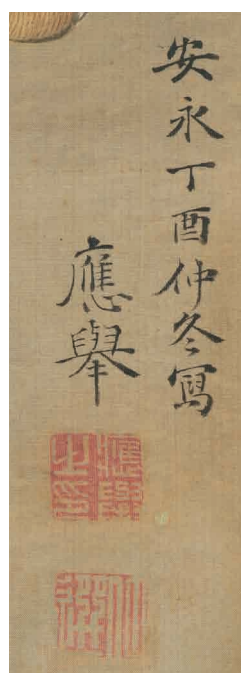 安永丁酉仲冬寫
應舉
應舉之印
仲選